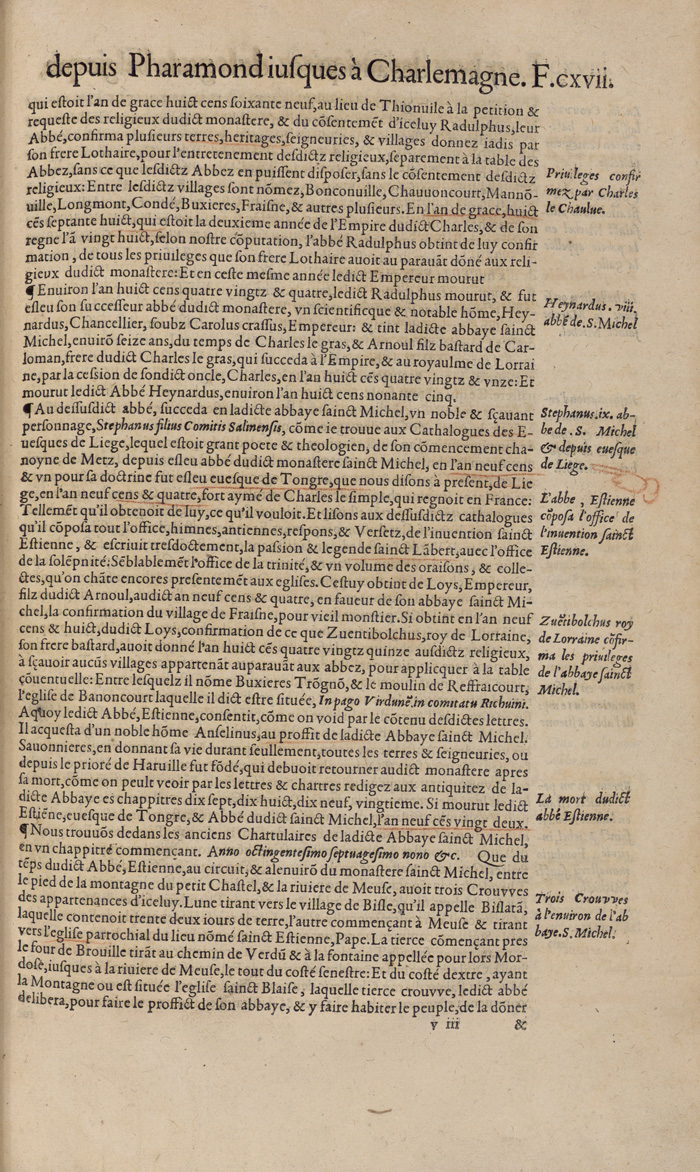 depuis Pharamond iuſques à Charlemagne. F.cxvii.
qui eſtoit l'an de grace huict cens ſoixante neuf, au lieu de Thionuile à la petition &
requeſte des religieux dudict monaſtere, & du cõſentemẽt d'iceluy Radulphus, leur
Abbé, confirma pluſieurs terres, heritages, ſeigneuries, & villages donnez iadis par
ſon frere Lothaire, pour l'entretenement deſdictz religieux, ſeparement à la table des
Abbez, ſans ce que leſdictz Abbez en puiſſent diſpoſer, ſans le cõſentement deſdictz
religieux: Entre leſdictz villages ſont nõmez, Bonconuille, Chauuoncourt, Mannõ-
uille, Longmont, Condé, Buxieres, Fraiſne, & autres pluſieurs. En l'an de grace, huict
cẽs ſeptante huict, qui eſtoit la deuxieme année de l'Empire dudict Charles, & de ſon
regne l'ã vingt huict, ſelon noſtre cõputation, l'abbé Radulphus obtint de luy confir
mation, de tous les priuileges que ſon frere Lothaire auoit au parauãt dõné aux reli-
gieux dudict monaſtere: Et en ceſte meſme année ledict Empereur mourut
Priuileges confir
mez par Charles
le Chaulue.
¶ Enuiron l'an huict cens quatre vingtz & quatre, ledict Radulphus mourut, & fut
eſleu ſon ſucceſſeur abbé dudict monaſtere, vn ſcientificque & notable hõme, Hey-
nardus, Chancellier, ſoubz Carolus craſſus, Empereur: & tint ladicte abbaye ſainct
Michel, enuirõ ſeize ans, du temps de Charles le gras, & Arnoul filz baſtard de Car-
loman, frere dudict Charles le gras, qui ſucceda à l'Empire, & au royaulme de Lorrai
ne, par la ceſsion de ſondict oncle, Charles, en l'an huict cẽs quatre vingtz & vnze: Et
mourut ledict Abbé Heynardus, enuiron l'an huict cens nonante cinq.
Heynardus. viii.
abbé de. S. Michel
¶ Au deſſuſdict abbé, ſucceda en ladicte abbaye ſainct Michel, vn noble & ſçauant
perſonnage, Stephanus filius Comitis Salmenſis, cõme ie trouue aux Cathalogues des E-
ueſques de Liege, lequel eſtoit grant poete & theologien, de ſon cõmencement cha-
noyne de Metz, depuis eſleu abbé dudict monaſtere ſainct Michel, en l'an neuf cens
& vn pour ſa doctrine fut eſleu eueſque de Tongre, que nous diſons à preſent, de Lie
ge, en l'an neuf cens & quatre, fort aymé de Charles le ſimple, qui regnoit en France:
Tellemẽt qu'il obtenoit de luy, ce qu'il vouloit. Et liſons aux deſſuſdictz cathalogues
qu'il cõpoſa tout l'office, himnes, antiennes, reſpons, & Verſetz, de l'inuention ſainct
Eſtienne, & eſcriuit treſdoctement, la paſsion & legende ſainct Lãbert, auec l'office
de la ſolẽpnité: Sẽblablemẽt l'office de la trinité, & vn volume des oraiſons, & colle-
ctes, qu'on chãte encores preſentemẽt aux egliſes. Ceſtuy obtint de Loys, Empereur,
filz dudict Arnoul, audict an neuf cens & quatre, en faueur de ſon abbaye ſainct Mi-
chel, la confirmation du village de Fraiſne, pour vieil monſtier. Si obtint en l'an neuf
cens & huict, dudict Loys, confirmation de ce que Zuentibolchus, roy de Lorraine,
ſon frere baſtard, auoit donné l'an huict cẽs quatre vingtz quinze auſdictz religieux,
à ſçauoir aucũs villages appartenãt auparauãt aux abbez, pour applicquer à la table
çouentuelle: Entre leſquelz il nõme Buxieres Trõgnõ, & le moulin de Reffraicourt,
l'egliſe de Banoncourt laquelle il dict eſtre ſituée, In pago Virdunẽ. in comitatu Richuini.
Aquoy ledict Abbé, Eſtienne, conſentit, cõme on void par le cõtenu deſdictes lettres.
Il acqueſta d'un noble hõme Anſelinus, au proffit de ladicte Abbaye ſainct Michel.
Sauonnieres, en donnant ſa vie durant ſeullement, toutes les terres & ſeigneuries, ou
depuis le prioré de Haruille fut fõdé, qui debuoit retourner audict monaſtere apres
ſa mort, cõme on peult veoir par les lettres & chartres redigez aux antiquitez de la-
dicte Abbaye es chappitres dix ſept, dix huict, dix neuf, vingtieme. Si mourut ledict
Eſtiẽne, eueſque de Tongre, & Abbé dudict ſainct Michel, l'an neuf cẽs vingt deux.
Stephanus. ix. ab-
be de. S. Michel
& depuis eueſque
de Liege.
L'abbe, Eſtienne
cõpoſa l'office de
l'inuention ſainct
Eſtienne.
Zuẽtibolchus roy
de Lorraine cõfir-
ma les priuileges
de l'abbaye ſainct
Michel.
La mort dudict
abbé Eſtienne.
¶ Nous trouuõs dedans les anciens Chartulaires de ladicte Abbaye ſainct Michel,
en vn chappitre commençant. Anno octingenteſimo ſeptuageſimo nono &c. Que du
tẽps dudict Abbé, Eſtienne, au circuit, & alenuirõ du monaſtere ſainct Michel, entre
le pied de la montagne du petit Chaſtel, & la riuiere de Meuſe, auoit trois Crouvves
des appartenances d'iceluy. Lune tirant vers le village de Biſle, qu'il appelle Biſlatã,
laquelle contenoit trente deux iours de terre, l'autre commençant à Meuſe & tirant
vers l'egliſe parrochial du lieu nõmé ſainct Eſtienne, Pape. La tierce cõmençant pres
le four de Brouille tirãt au chemin de Verdũ & à la fontaine appellée pour lors Mor-
doſe, iuſques à la riuiere de Meuſe, le tout du coſté ſeneſtre: Et du coſté dextre, ayant
la Montagne ou eſt ſituée l'egliſe ſainct Blaiſe, laquelle tierce crouvve, ledict abbé
delibera, pour faire le proffict de ſon abbaye, & y faire habiter le peuple, de la dõner
Trois Crouvves
à l'enuiron de l'ab
baye. S. Michel.
y iii &